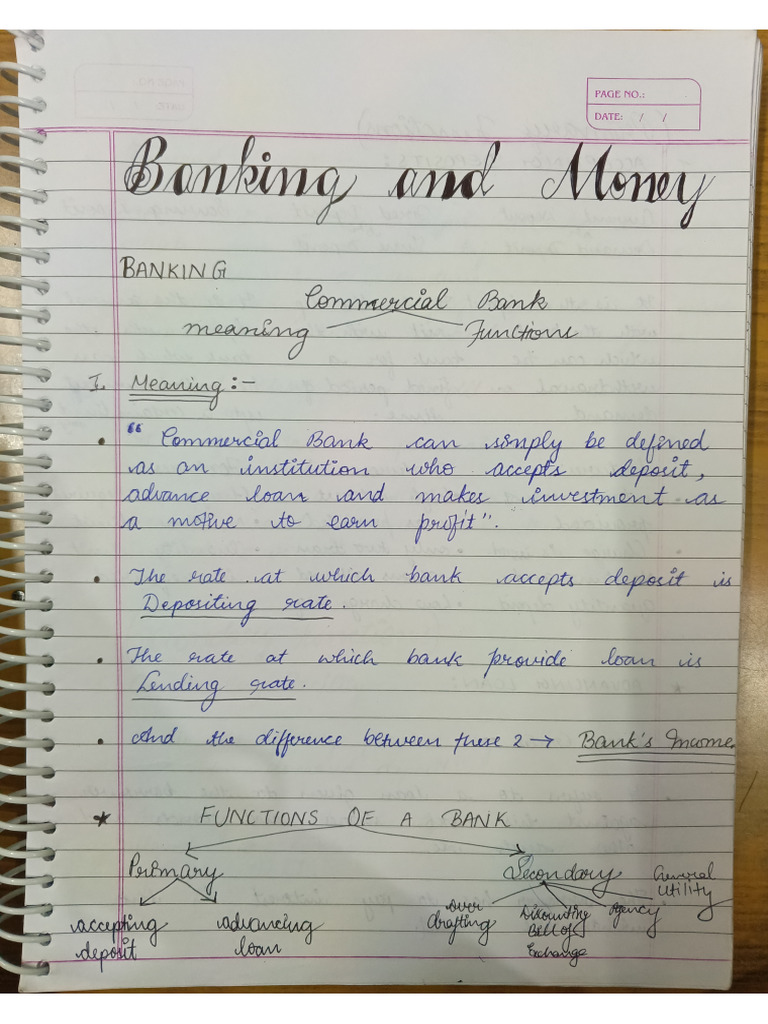 PAGE NO.:
DATE: / /
Banking and Money
BANKING
Commercial Bank
meaning Functions
I. Meaning :-
• "Commercial Bank can simply be defined
as an institution who accepts deposit,
advance loan and makes investment as
a motive to earn profit".
• The rate at which bank accepts deposit is
Depositing rate.
• The rate at which bank provide loan is
Lending rate.
• And the difference between these 2 → Bank's Income.
* FUNCTIONS OF A BANK
Primary Secondary
accepting deposit
advancing loan
Over drafting
Discounting Bill of Exchange
Agency
General Utility